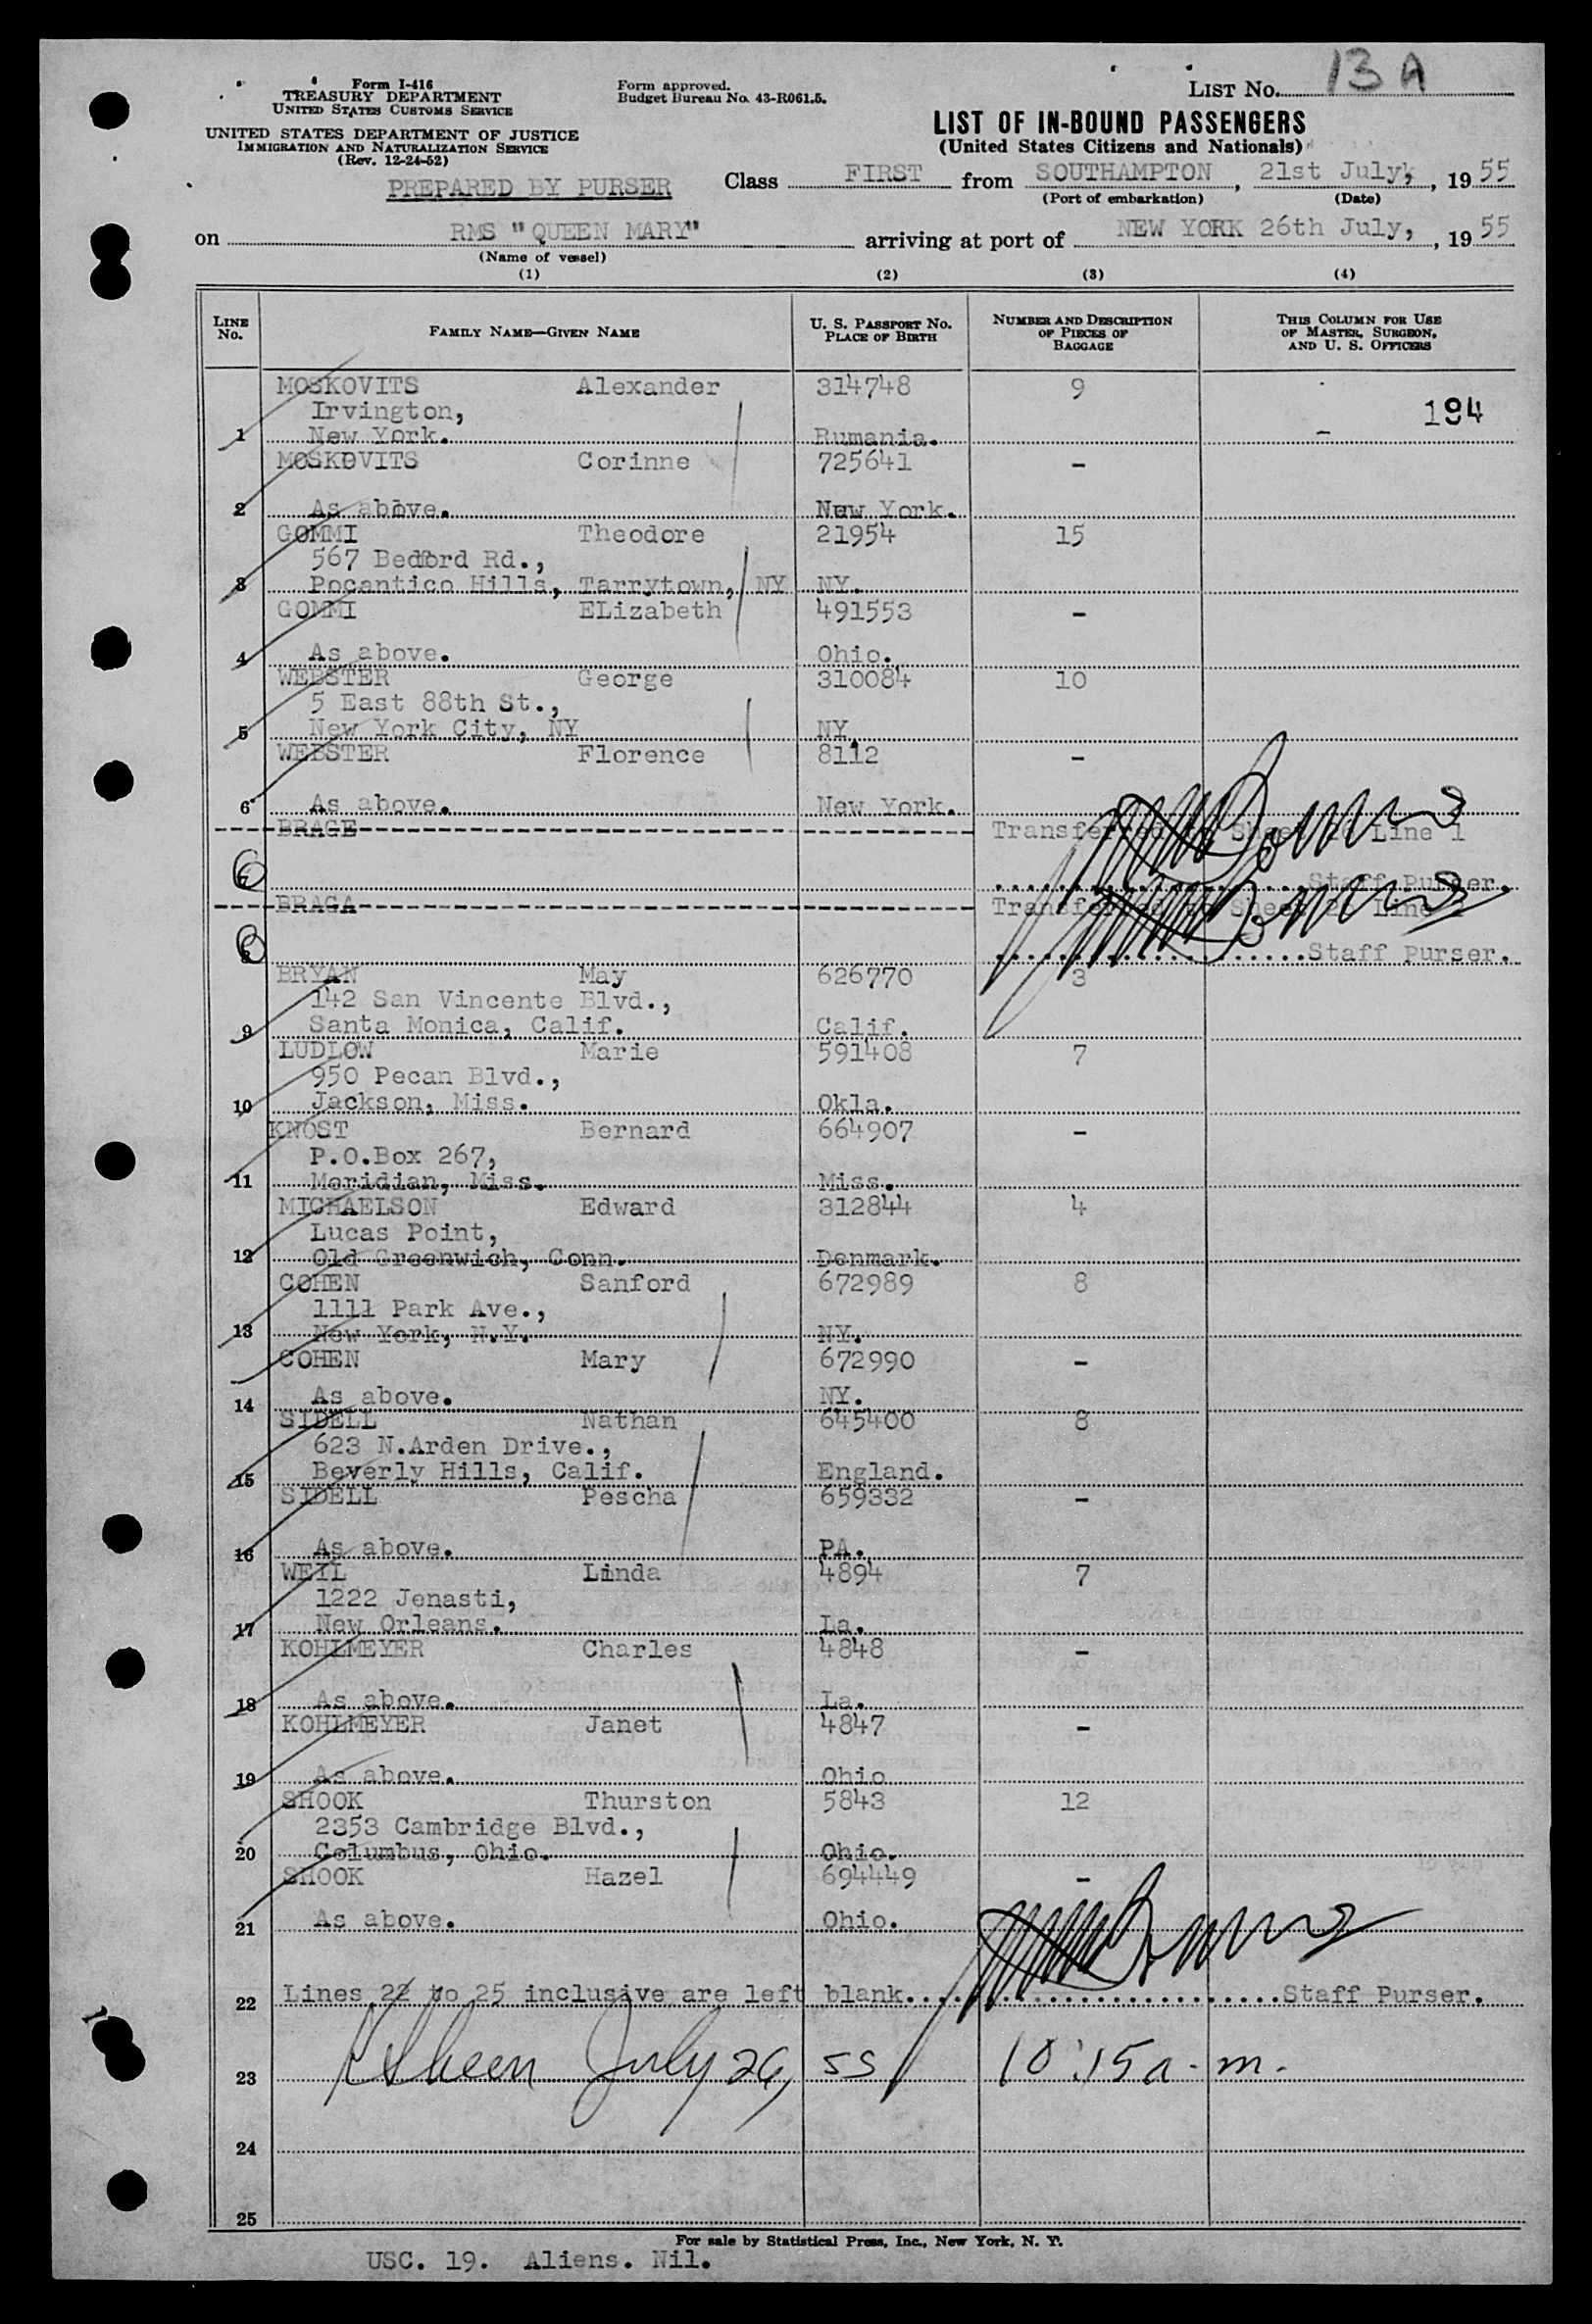 Form I-416
TREASURY DEPARTMENT
UNITED STATES CUSTOMS SERVICE
UNITED STATES DEPARTMENT OF JUSTICE
IMMIGRATION AND NATURALIZATION SERVICE
(Rev. 12-24-52)
PREPARED BY PURSER
Form approved.
Budget Bureau No. 43-R061.5.
LIST No. 13 A
LIST OF IN-BOUND PASSENGERS
(United States Citizens and Nationals)
Class FIRST from SOUTHAMPTON, 21st July, , 19 55
(Port of embarkation) (Date)
on RMS "QUEEN MARY" arriving at port of NEW YORK 26th July, , 19 55
(Name of vessel)
(1) (2) (3) (4)
LINE No. FAMILY NAME—GIVEN NAME U. S. PASSPORT No. PLACE OF BIRTH NUMBER AND DESCRIPTION OF PIECES OF BAGGAGE THIS COLUMN FOR USE OF MASTER, SURGEON, AND U. S. OFFICERS
MOSKOVITS Alexander 314748 9
Irvington, 194
1 New York. Rumania. -
MOSKOVITS Corinne 725641 -
2 As above. New York.
GOMMI Theodore 21954 15
567 Bedford Rd.,
3 Pocantico Hills, Tarrytown, NY NY.
GOMMI ELizabeth 491553 -
4 As above. Ohio.
WEBSTER George 310084 10
5 East 88th St.,
5 New York City, NY NY.
WEBSTER Florence 8112 -
6 As above. New York.
BRAGE Transferred to Sheet Line 1
7 Staff Purser.
BRAGA Transferred to Sheet Line
8 Staff Purser.
BRYAN May 626770 3
142 San Vincente Blvd.,
9 Santa Monica, Calif. Calif.
LUDLOW Marie 591408 7
950 Pecan Blvd.,
10 Jackson, Miss. Okla.
KNOST Bernard 664907 -
P.O.Box 267,
11 Meridian, Miss. Miss.
MICHAELSON Edward 312844 4
Lucas Point,
12 Old Greenwich, Conn. Denmark.
COHEN Sanford 672989 8
1111 Park Ave.,
13 New York, N.Y. NY.
COHEN Mary 672990 -
14 As above. NY.
SIDELL Nathan 645400 8
623 N.Arden Drive.,
15 Beverly Hills, Calif. England.
SIDELL Pescha 659332 -
16 As above. PA.
WEIL Linda 4894 7
1222 Jenasti,
17 New Orleans. La.
KOHLMEYER Charles 4848 -
18 As above. La.
KOHLMEYER Janet 4847 -
19 As above. Ohio
SHOOK Thurston 5843 12
2353 Cambridge Blvd.,
20 Columbus, Ohio. Ohio.
SHOOK Hazel 694449 -
21 As above. Ohio.
22 Lines 22 to 25 inclusive are left blank. Staff Purser.
23 July 26, 55 10:15 a.m.
24
25
For sale by Statistical Press, Inc., New York, N. Y.
USC. 19. Aliens. Nil.